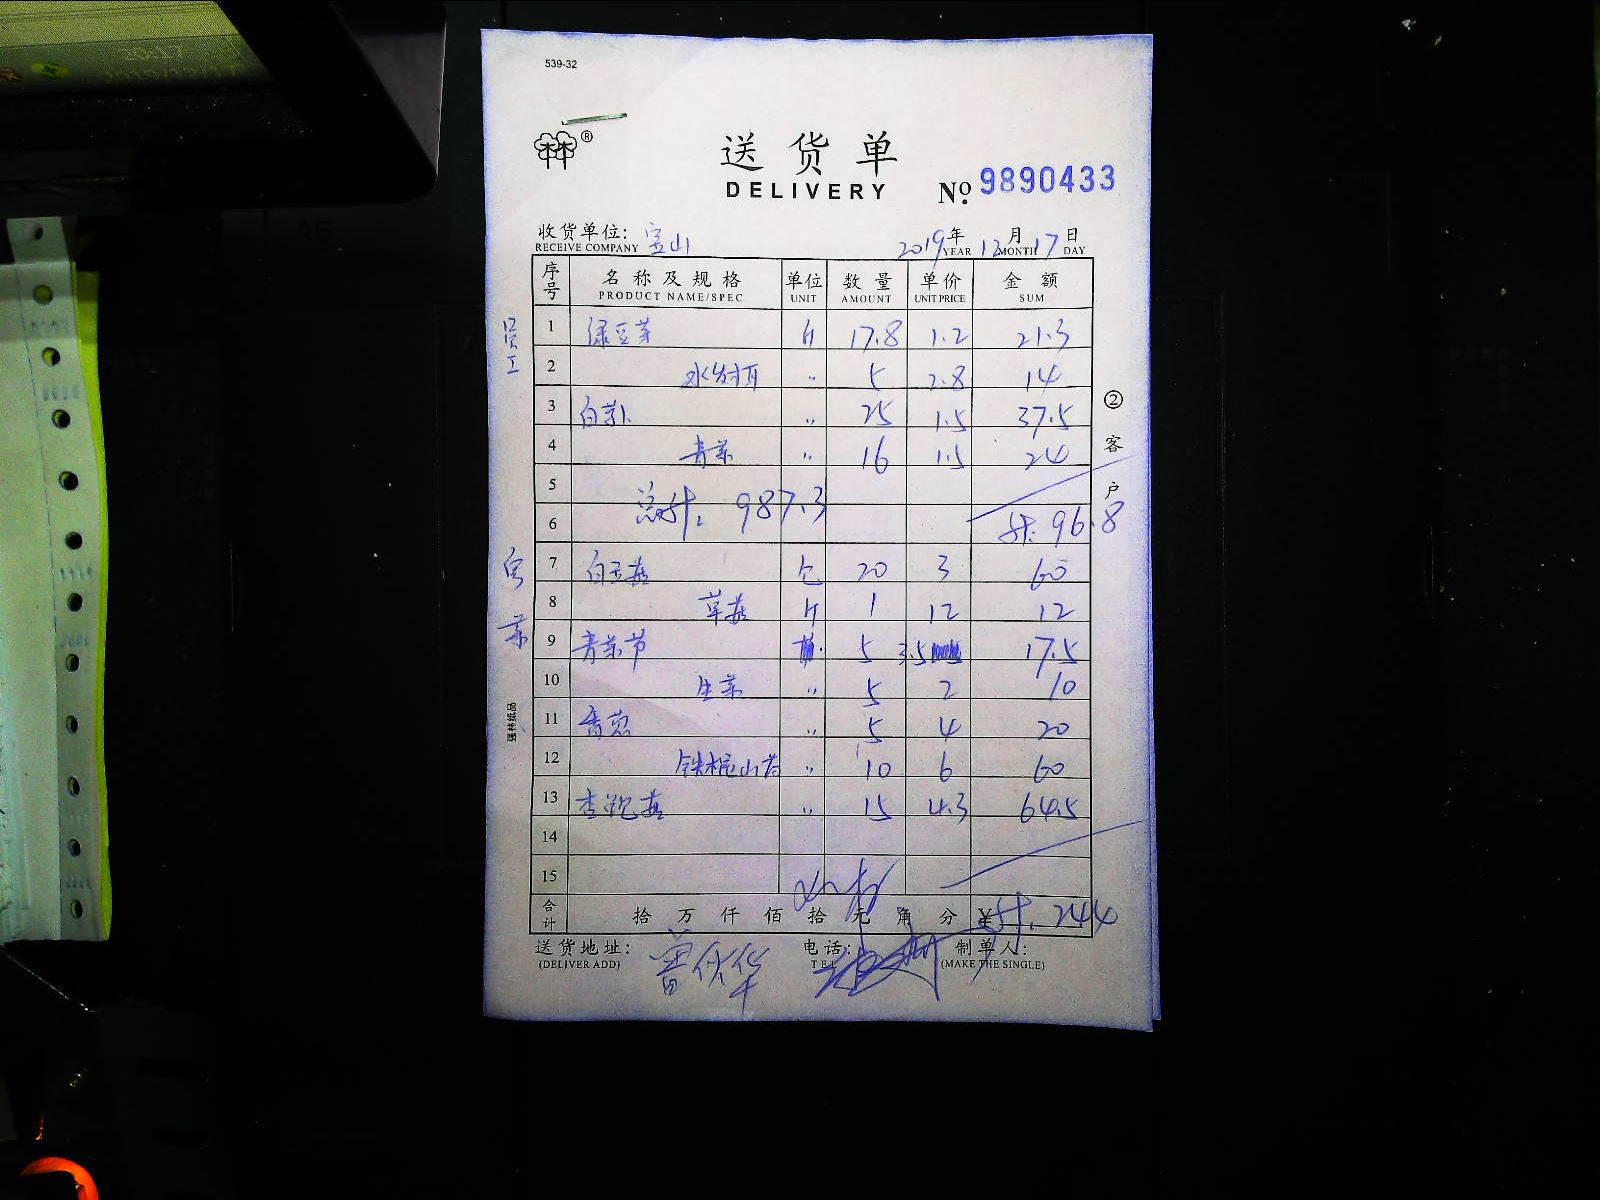 539-32
林®
送货单
DELIVERY
No. 9890433
收货单位: 宝山
RECEIVE COMPANY
2019年 12月 17日
YEAR MONTH DAY
序号 名称及规格 单位 数量 单价 金额
PRODUCT NAME/SPEC UNIT AMOUNT UNIT PRICE SUM
员工
1 绿豆芽 斤 17.8 1.2 21.3
2 水发木耳 〃 5 2.8 14
3 白萝卜 〃 25 1.5 37.5
4 青菜 〃 16 1.5 24
② 客户
5
总计: 987.3
6 计: 96.8
7 白玉菇 包 20 3 60
8 草菇 斤 1 12 12
9 青菜节 5 3.5 17.5
10 生菜 〃 5 2 10
11 香葱 〃 5 4 20
12 铁棍山药 〃 10 6 60
13 杏鲍菇 〃 15 4.3 64.5
14
15
强林纸品
合计 拾万仟佰拾元角分 ¥ 计: 244
送货地址: 电话: 制单人:
(DELIVER ADD) TEL (MAKE THE SINGLE)